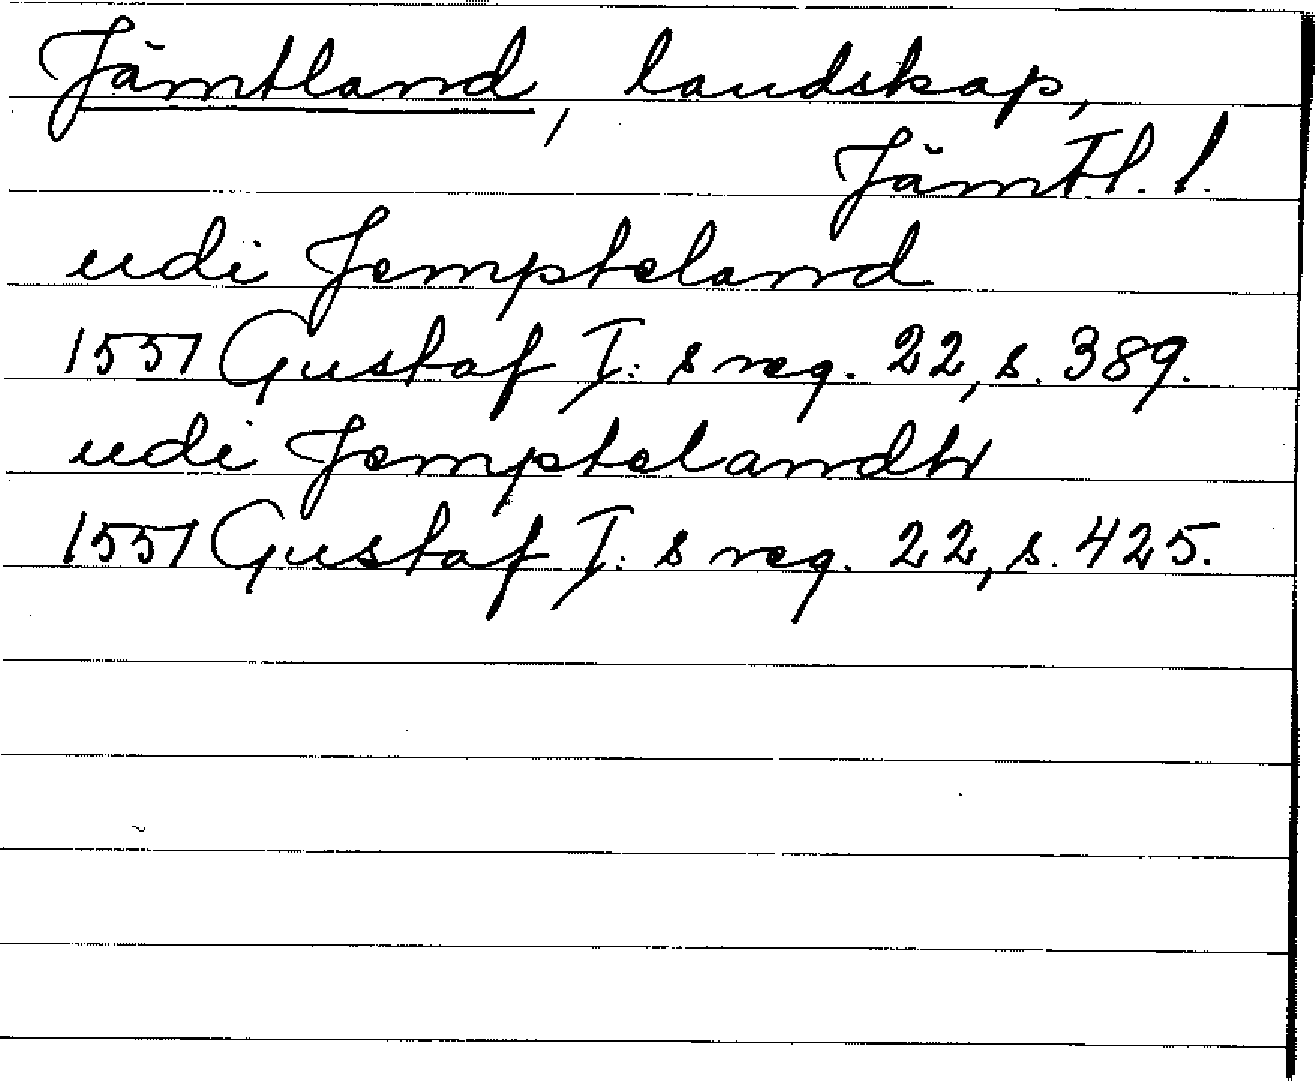 Jämtland, landskap,
Jämtl. l.
udi Jempteland
1551 Gustaf I: s reg. 22, s. 389.
udi Jemptelandh
1551 Gustaf I: s reg. 22, s. 425.